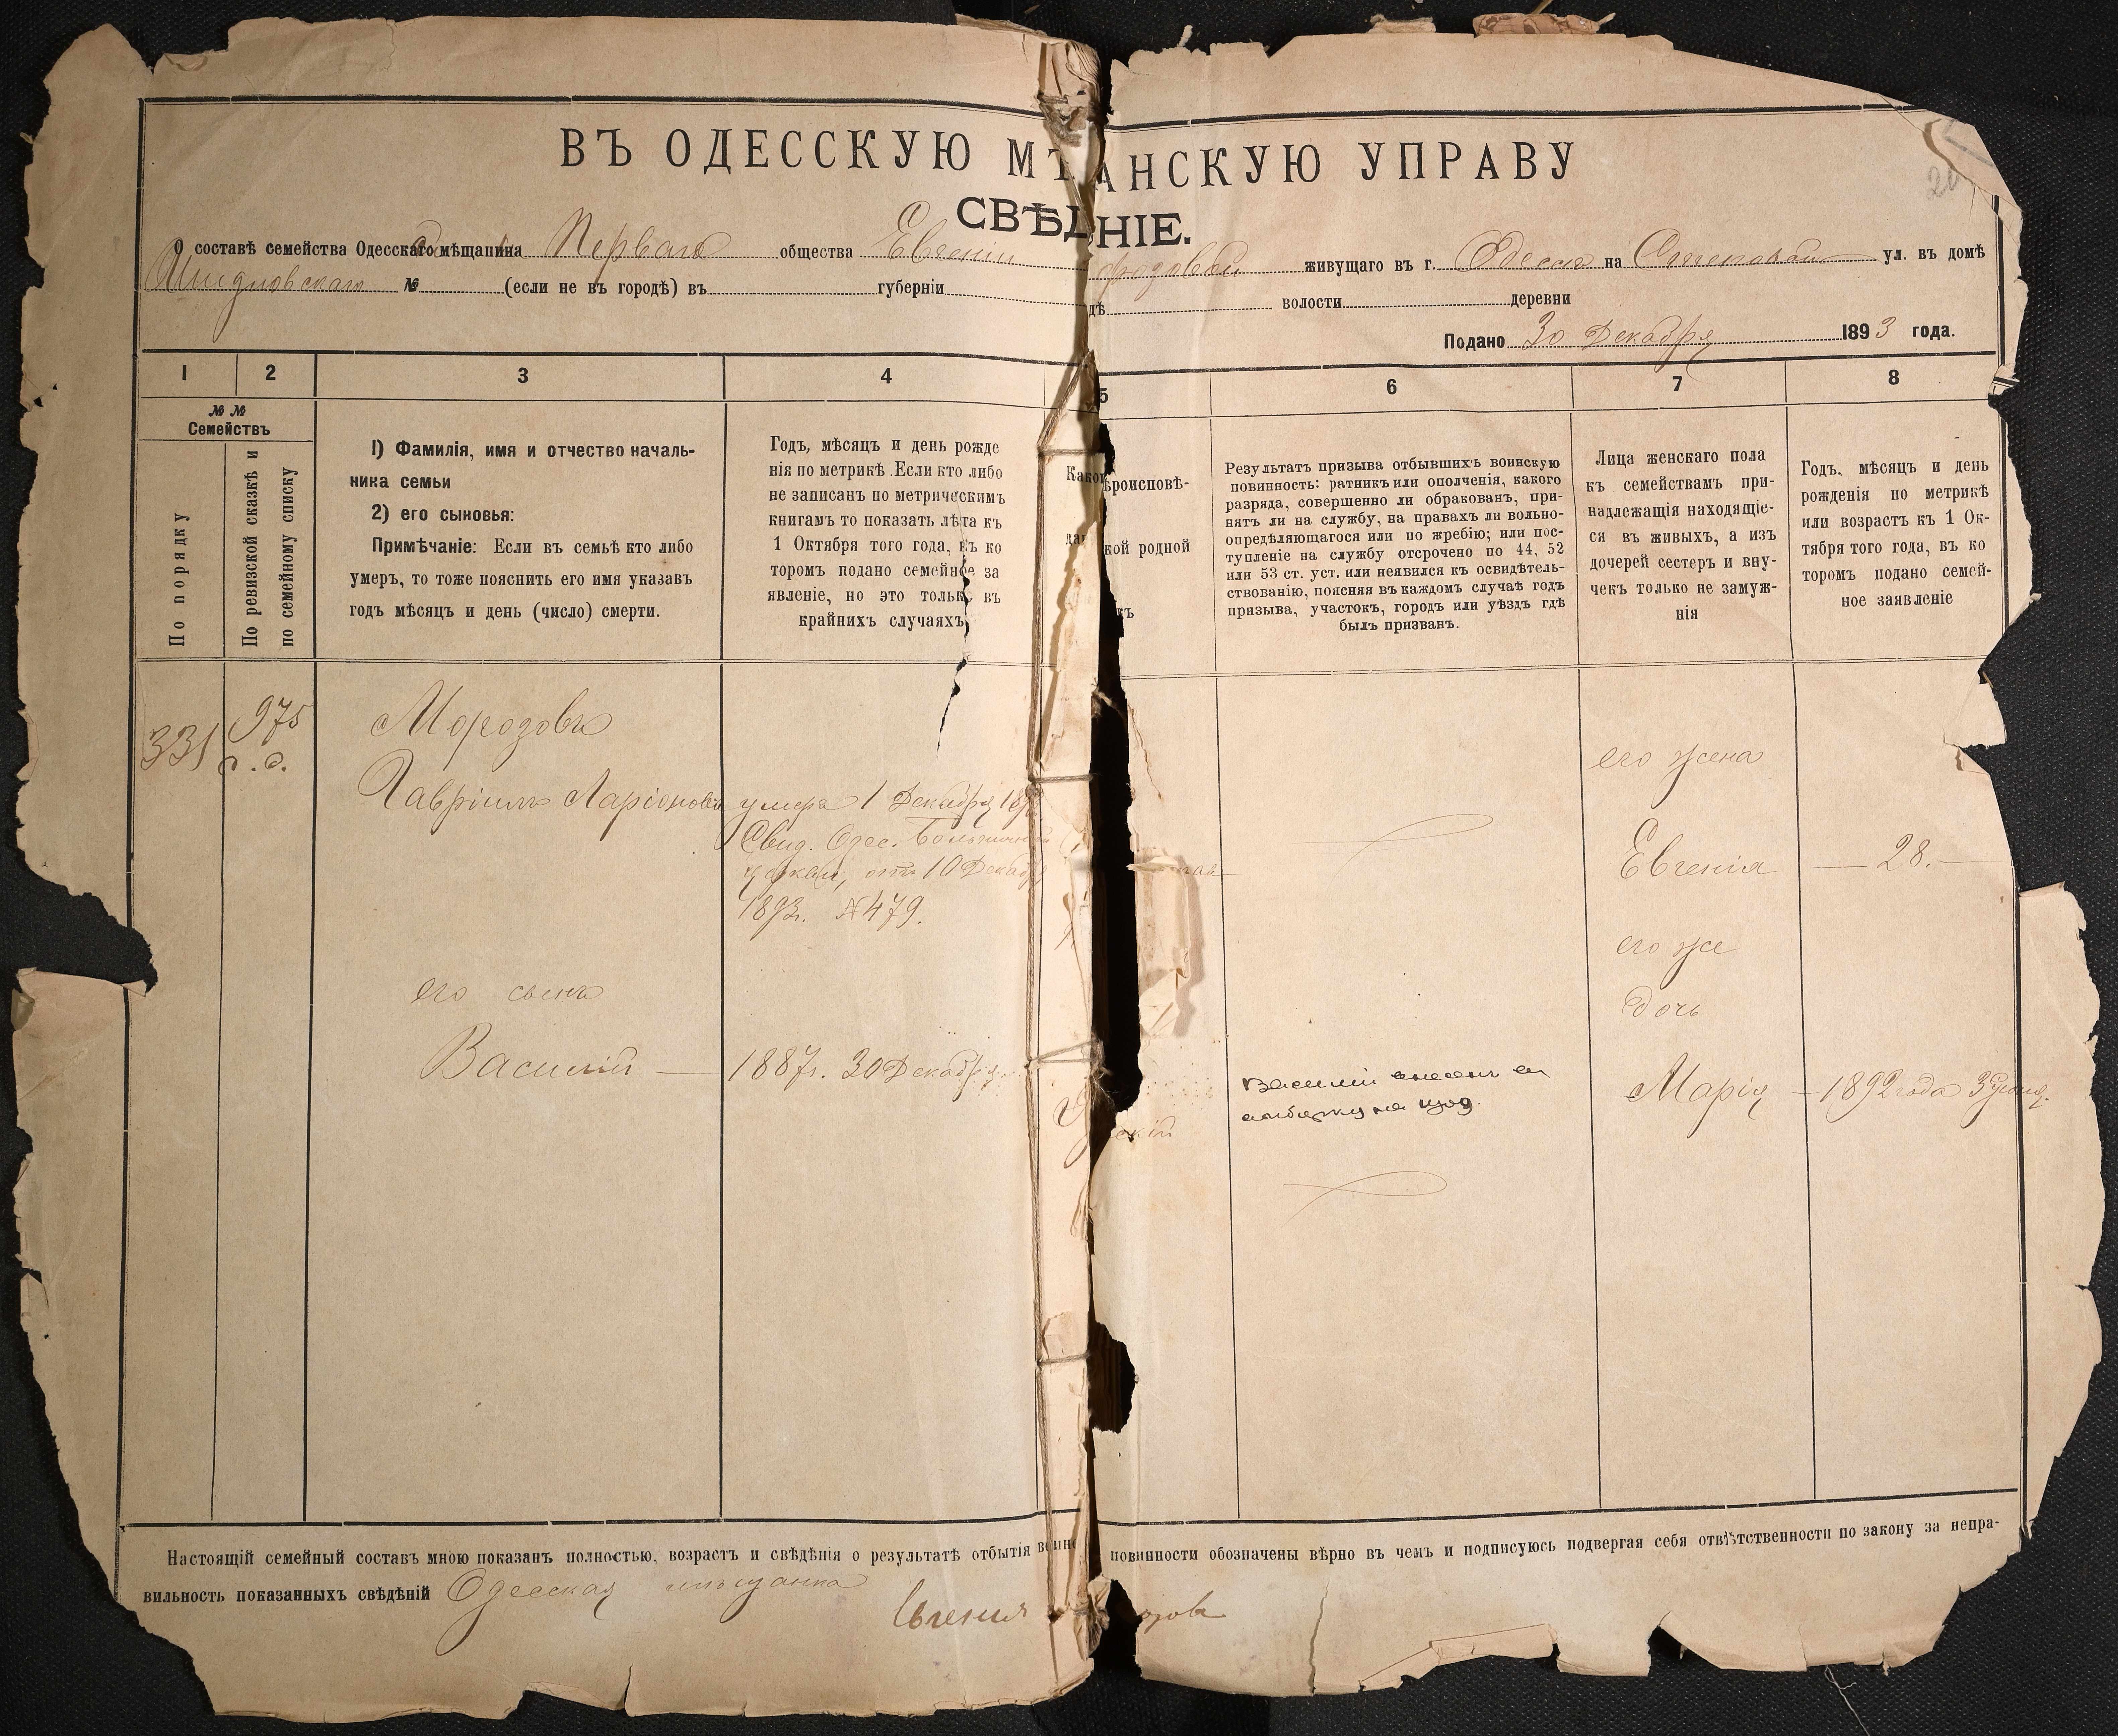 ВЪ ОДЕССКУЮ МѢ АНСКУЮ УПРАВУ
СВѢД НІЕ.
О составѣ семейства Одесскаго мѣщанина Перваго общества Евгеніи розовой живущаго въ г. Одессѣ на Степовой ул. въ домѣ
№ (если не въ городѣ) въ губерніи дѣ волости деревни
Подано 30 Декабря 1893 года.
1 2 3 4 5 6 7 8
№ №
Семействъ
По порядку
По ревизской сказкѣ и
по семейному списку
1) Фамилія, имя и отчество началь-
ника семьи
2) его сыновья:
Примѣчаніе: Если въ семьѣ кто либо
умеръ, то тоже пояснить его имя указавъ
годъ мѣсяцъ и день (число) смерти.
Годъ, мѣсяцъ и день рожде
нія по метрикѣ. Если кто либо
не записанъ по метрическимъ
книгамъ то показать лѣта къ
1 Октября того года, въ ко
торомъ подано семейное за
явленіе, но это только въ
крайнихъ случаяхъ
Како ѣроисповѣ-
да кой родной
къ
Результатъ призыва отбывшихъ воинскую
повинность: ратникъ или ополченія, какого
разряда, совершенно ли обракованъ, при-
нятъ ли на службу, на правахъ ли вольно-
опредѣляющагося или по жребію; или пос-
тупленіе на службу отсрочено по 44, 52
или 53 ст. уст. или неявился къ освидѣтель-
ствованію, поясняя въ каждомъ случаѣ годъ
призыва, участокъ, городъ или уѣздъ гдѣ
былъ призванъ.
Лица женскаго пола
къ семействамъ при-
надлежащія находящіе-
ся въ живыхъ, а изъ
дочерей сестеръ и вну-
чекъ только не замуж-
нія
Годъ, мѣсяцъ и день
рожденія по метрикѣ
или возрастъ къ 1 Ок-
тября того года, въ ко
торомъ подано семей-
ное заявленіе
331
975
р. с.
Морозовъ
Гавріилъ Ларіоновъ умеръ 1 Декабря 189
Свид. Одес. Больничной
церкви, отъ 10 Декаб
1893г. №479.
его жена
Евгенія — 28. —
его же
дочь
Марія — 1892 года 3
его сынъ
Василій — 1887г. 30 Декабря
скій
Василій внесенъ въ
на
Настоящій семейный составъ мною показанъ полностью, возрастъ и свѣдѣнія о результатѣ отбытія воинс повинности обозначены вѣрно въ чемъ и подписуюсь подвергая себя отвѣтственности по закону за непра-
вильность показанныхъ свѣдѣній Одесская мѣщанка
Евгения озова